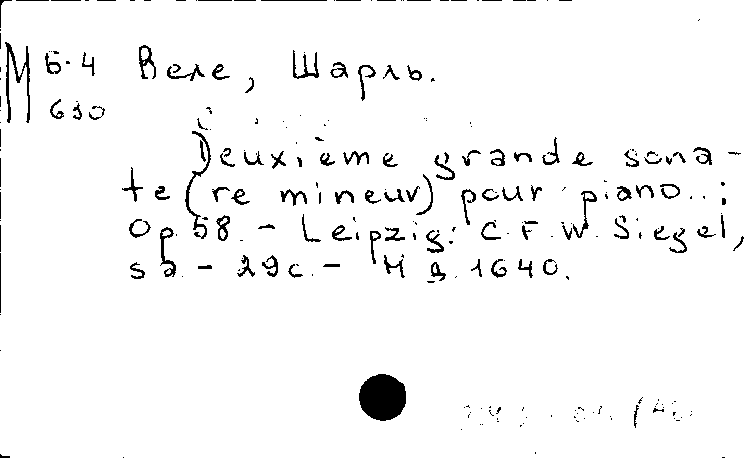 М Б-4 Веле, Шарль.
630
Deuxième grande sona-
te (re mineur) pour piano..;
Op.58. - Leipzig: C.F.W. Siegel,
s a. - 29с. - Н д. 1640.